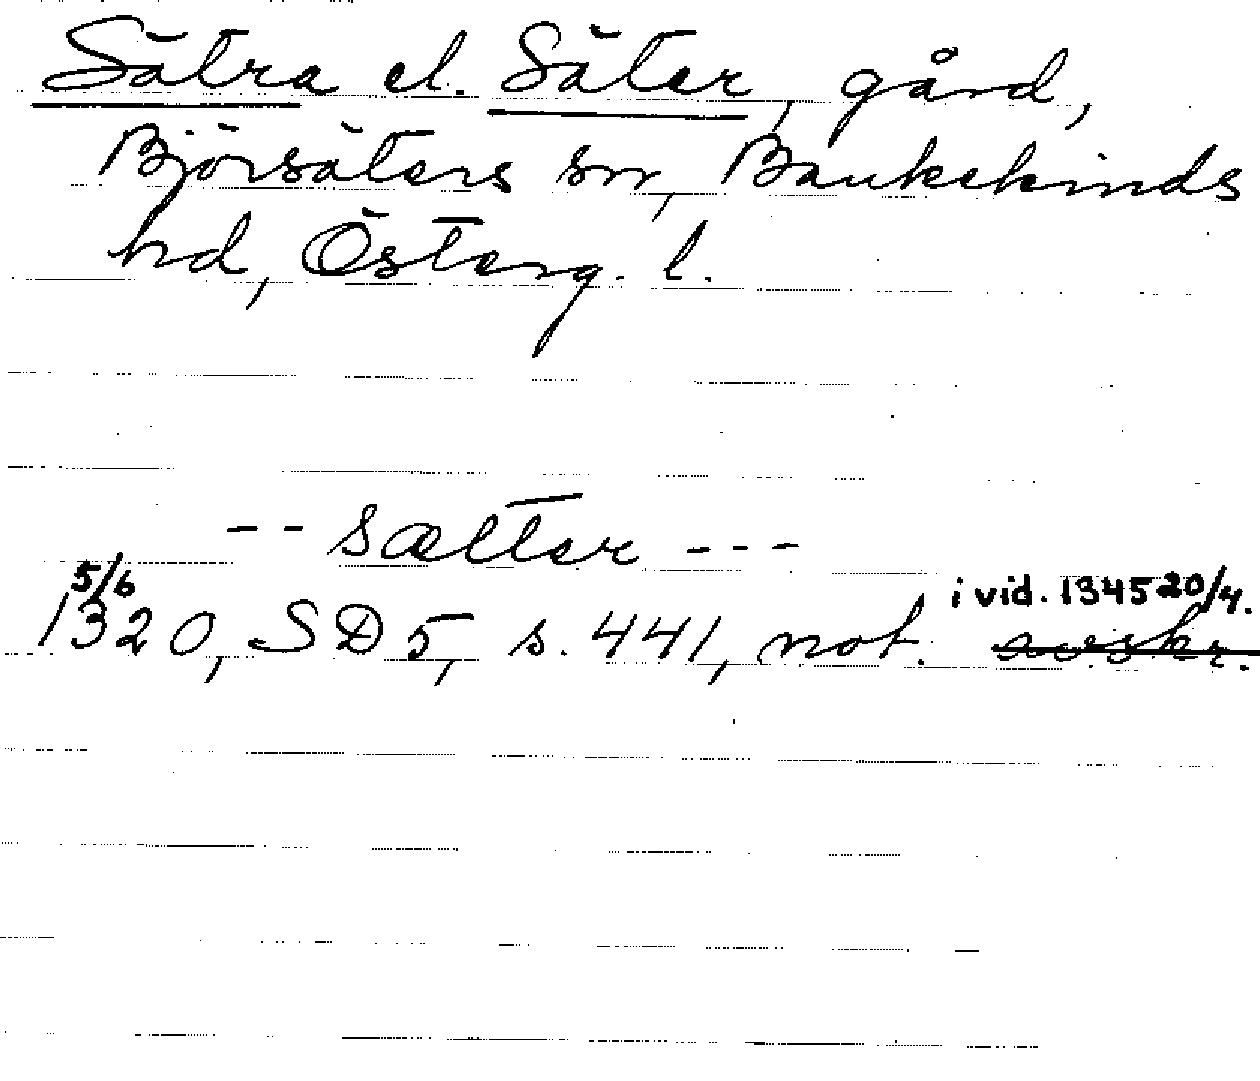 Sätra el. Säter, gård,
Björsäters sn, Bankekinds
hd, Österg. l.
-- Sætter ---
5/6 i vid. 1345 20/4.
1320, SD 5, s. 441, not. avskr.